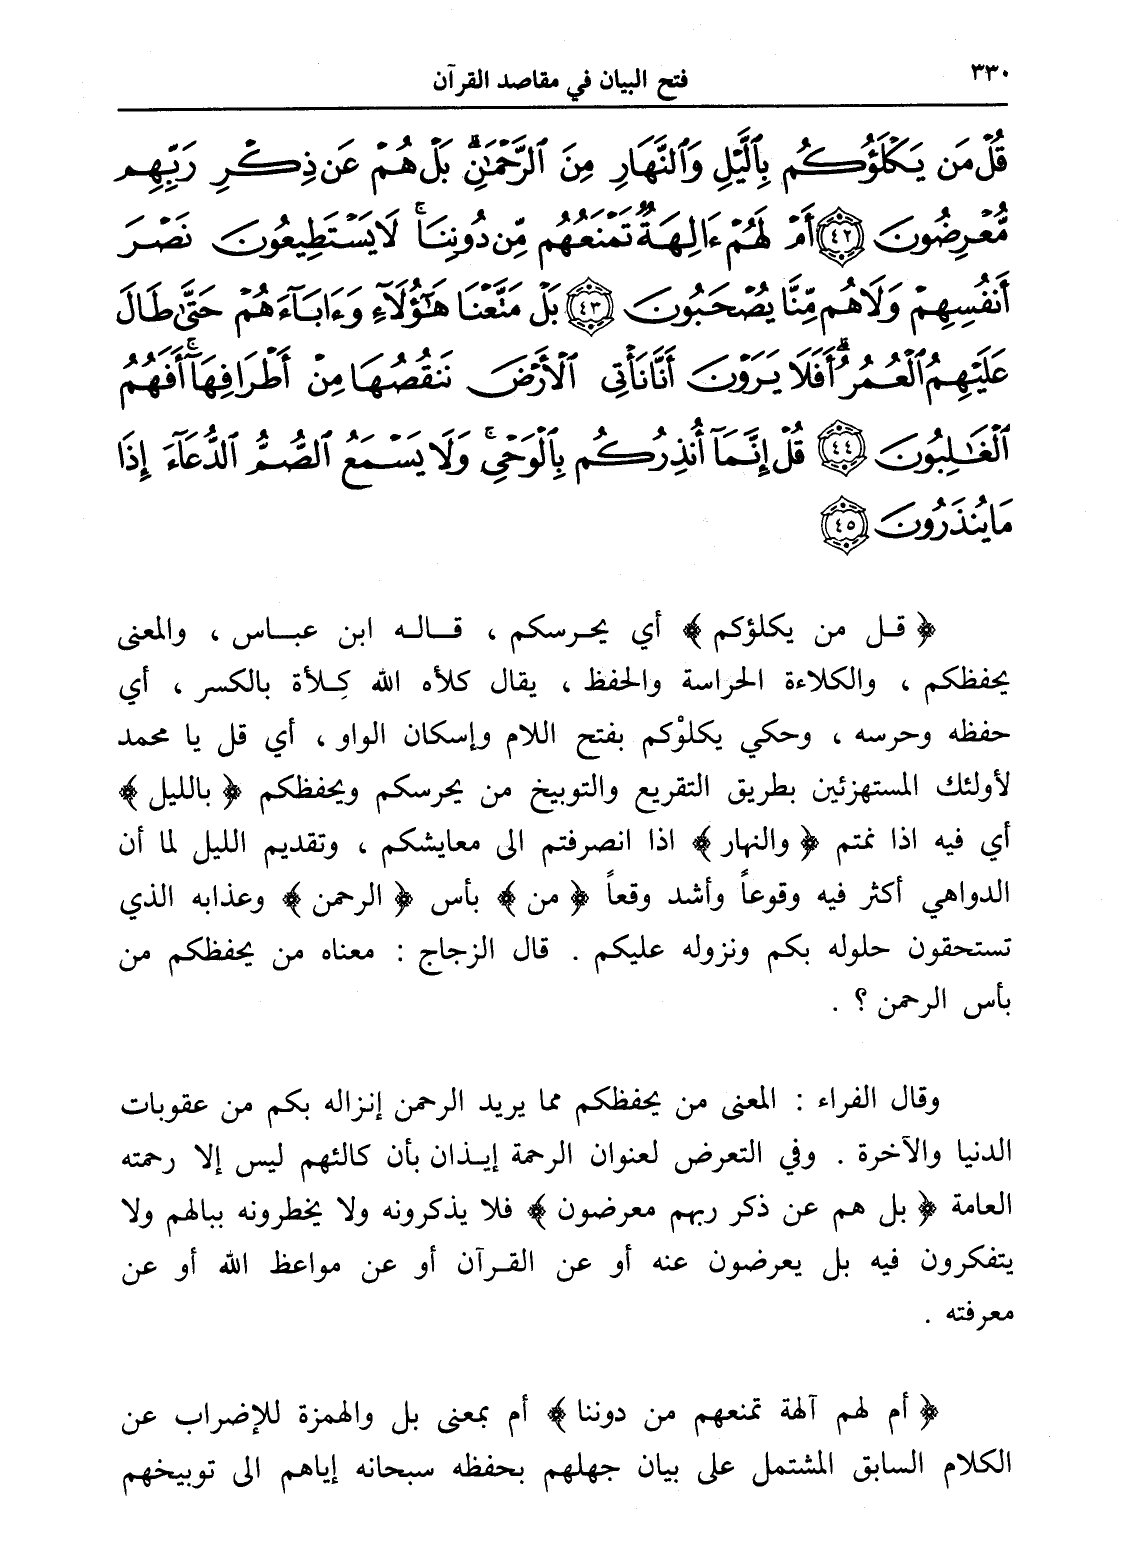 ٣٣٠
فتح البيان في مقاصد القرآن
قُلْ مَن يَكْلَؤُكُم بِٱلَّيْلِ وَٱلنَّهَارِ مِنَ ٱلرَّحْمَٰنِ ۗ بَلْ هُمْ عَن ذِكْرِ رَبِّهِم
مُّعْرِضُونَ ﴿٤٢﴾ أَمْ لَهُمْ ءَالِهَةٌ تَمْنَعُهُم مِّن دُونِنَا ۚ لَا يَسْتَطِيعُونَ نَصْرَ
أَنفُسِهِمْ وَلَا هُم مِّنَّا يُصْحَبُونَ ﴿٤٣﴾ بَلْ مَتَّعْنَا هَٰٓؤُلَآءِ وَءَابَآءَهُمْ حَتَّىٰ طَالَ
عَلَيْهِمُ ٱلْعُمُرُ ۗ أَفَلَا يَرَوْنَ أَنَّا نَأْتِى ٱلْأَرْضَ نَنقُصُهَا مِنْ أَطْرَافِهَآ ۚ أَفَهُمُ
ٱلْغَٰلِبُونَ ﴿٤٤﴾ قُلْ إِنَّمَآ أُنذِرُكُم بِٱلْوَحْىِ ۚ وَلَا يَسْمَعُ ٱلصُّمُّ ٱلدُّعَآءَ إِذَا
مَا يُنذَرُونَ ﴿٤٥﴾
﴿ قـل من يكلؤكم ﴾ أي يحـرسكم ، قـالـه ابن عبـاس ، والمعنى
يحفظكم ، والكلاءة الحراسة والحفظ ، يقال كلأه الله كِـلأة بالكسر ، أي
حفظه وحرسه ، وحكي يكلوْكم بفتح اللام وإسكان الواو ، أي قل يا محمد
لأولئك المستهزئين بطريق التقريع والتوبيخ من يحرسكم ويحفظكم ﴿ بالليل ﴾
أي فيه اذا نمتم ﴿ والنهار ﴾ اذا انصرفتم الى معايشكم ، وتقديم الليل لما أن
الدواهي أكثر فيه وقوعاً وأشد وقعاً ﴿ من ﴾ بأس ﴿ الرحمن ﴾ وعذابه الذي
تستحقون حلوله بكم ونزوله عليكم . قال الزجاج : معناه من يحفظكم من
بأس الرحمن ؟ .
وقال الفراء : المعنى من يحفظكم مما يريد الرحمن إنزاله بكم من عقوبات
الدنيا والآخرة . وفي التعرض لعنوان الرحمة إيـذان بأن كالئهم ليس إلا رحمته
العامة ﴿ بل هم عن ذكر ربهم معرضون ﴾ فلا يذكرونه ولا يخطرونه ببالهم ولا
يتفكرون فيه بل يعرضون عنه أو عن القـرآن أو عن مواعظ الله أو عن
معرفته .
﴿ أم لهم آلهة تمنعهم من دوننا ﴾ أم بمعنى بل والهمزة للإضراب عن
الكلام السابق المشتمل على بيان جهلهم بحفظه سبحانه إياهم الى توبيخهم